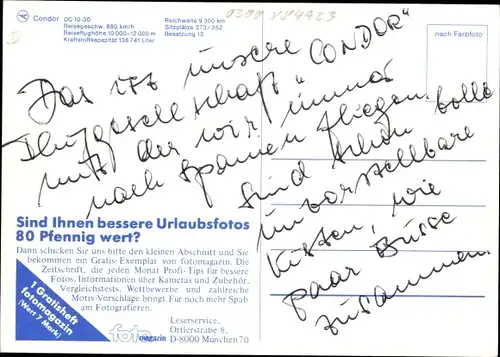 Condor DC 10-30
Reisegeschw. 880 km/h
Reiseflughöhe 10 000-12 000 m
Kraftstoffkapazität 138 741 Liter
Reichweite 9 300 km
Sitzplätze 373/352
Besatzung 13
nach Farbfoto
Das ist unsere "CONDOR"
Fluggesellschaft
mit der wir immer
nach Spanien fliegen.
Sind schon tolle
unvorstellbare
Kisten, wie
paar Busse
zusammen.
Sind Ihnen bessere Urlaubsfotos
80 Pfennig wert?
Dann schicken Sie uns bitte den kleinen Abschnitt und Sie
bekommen ein Gratis-Exemplar von fotomagazin. Die
Zeitschrift, die jeden Monat Profi-Tips für bessere
Fotos, Informationen über Kameras und Zubehör,
Vergleichstests, Wettbewerbe und zahlreiche
Motiv-Vorschläge bringt. Für noch mehr Spaß
am Fotografieren.
1 Gratisheft
fotomagazin
(Wert 7 Mark)
foto
magazin
Leserservice,
Ortlerstraße 8,
D-8000 München 70